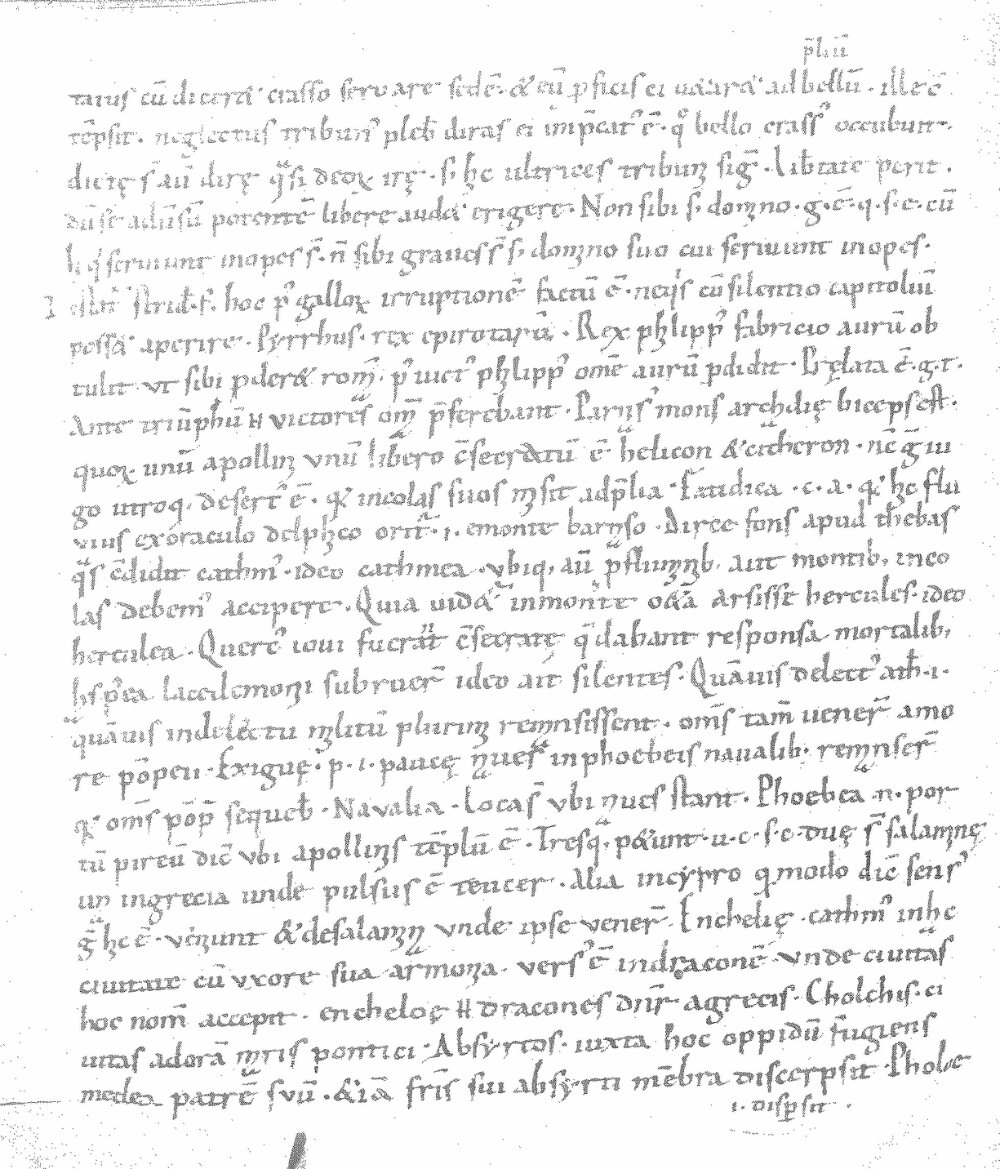 p̄liū
taius cū diceret crasso servare sedē · & cū pficis ei uetaret ad bellū · ille cō
tēpsit · neglectus tribun' pleb diras ei imp̄cat' ē · q' bello crass' occubuit ·
dicte s̄ aū dire q̄si deoꝝ ire · si hec ultrices tribuni sig̅ · Libtate perit ·
dū se aduīsū potentē libere audet erigere · Non sibi s; domino · g · ē · q · s · e · cū
hi q' seruiunt inopes s̄ · n̄ sibi graues s̄ s; domino suo cui seruiunt inopes ·
hoc p' galloꝝ irruptionē factū ē · cū silentio capitoliū
possēt aperire · Pyrrhus · rex epirotarū · Rex philipp' fabricio aurū ob
tulit vt sibi pderet rom̄ · p' uict' philipp' om̄e aurū pdidit · Prelata ē · g · t ·
Ante triūphū victores om̄ p̄ferebant · Parnis' mons archdie biceps est ·
quoꝝ unū apollini vnū libero c̄secratū ē helicon & citheron · nē g̅ iu
go utroq; desert' ē · q incolas suos misit ad p̄lia · Fatidica · c · a · q hec flu
vius ex oraculo delphico orit̄ · i · e monte parnso · Dirce fons apud thebas
q̄s c̄didit cathm' · ideo cathmea · vbiq; aū p̄ fluminib; aut montib; inco
las debem' accipere · Quia uidet in monte oeta arsisse hercules · ideo
herculea · Querc' ioui fuerat c̄secrate q̄ dabant responsa mortalib;
his p'ea lacedemoni subruer̄ ideo ait silentes · Quāuis delect' ath · i ·
quāuis in delectu militū plurimi remnsissent · om̄s tam̄ uener̄ amo
re pōpeii · Exigue · p · i · pauce naues in phoebeis naualib; remnser̄
q om̄s pōp̄ sequeb · Navalia · Locas̄ vbi naues stant · Phoebea · n · por
tū pireū dic̄ vbi apollinis tēplū ē · Tresq; petunt · u · c · s · c · due s̄ salamine
un in grecia unde pulsus ē teucer · Alia in cypro q modo dic̄ sens'
g̅ hec ē · veniunt & de salamin vnde ipse vener̄ · Enchelie · cathm' in hc
ciuitate cū vxore sua armonia · vers' ē in draconē vnde ciuitas
hoc nom̄ accepit · encheloe dracones dnr̄ a grecis · Cholchis · ci
uitas adorā mris pontici · Absyrtos · iuxta hoc oppidū fugiens
medea patrē suū · & iā fris sui absyrti mēbra discerpsit · Pholoe
i · dispsit ·